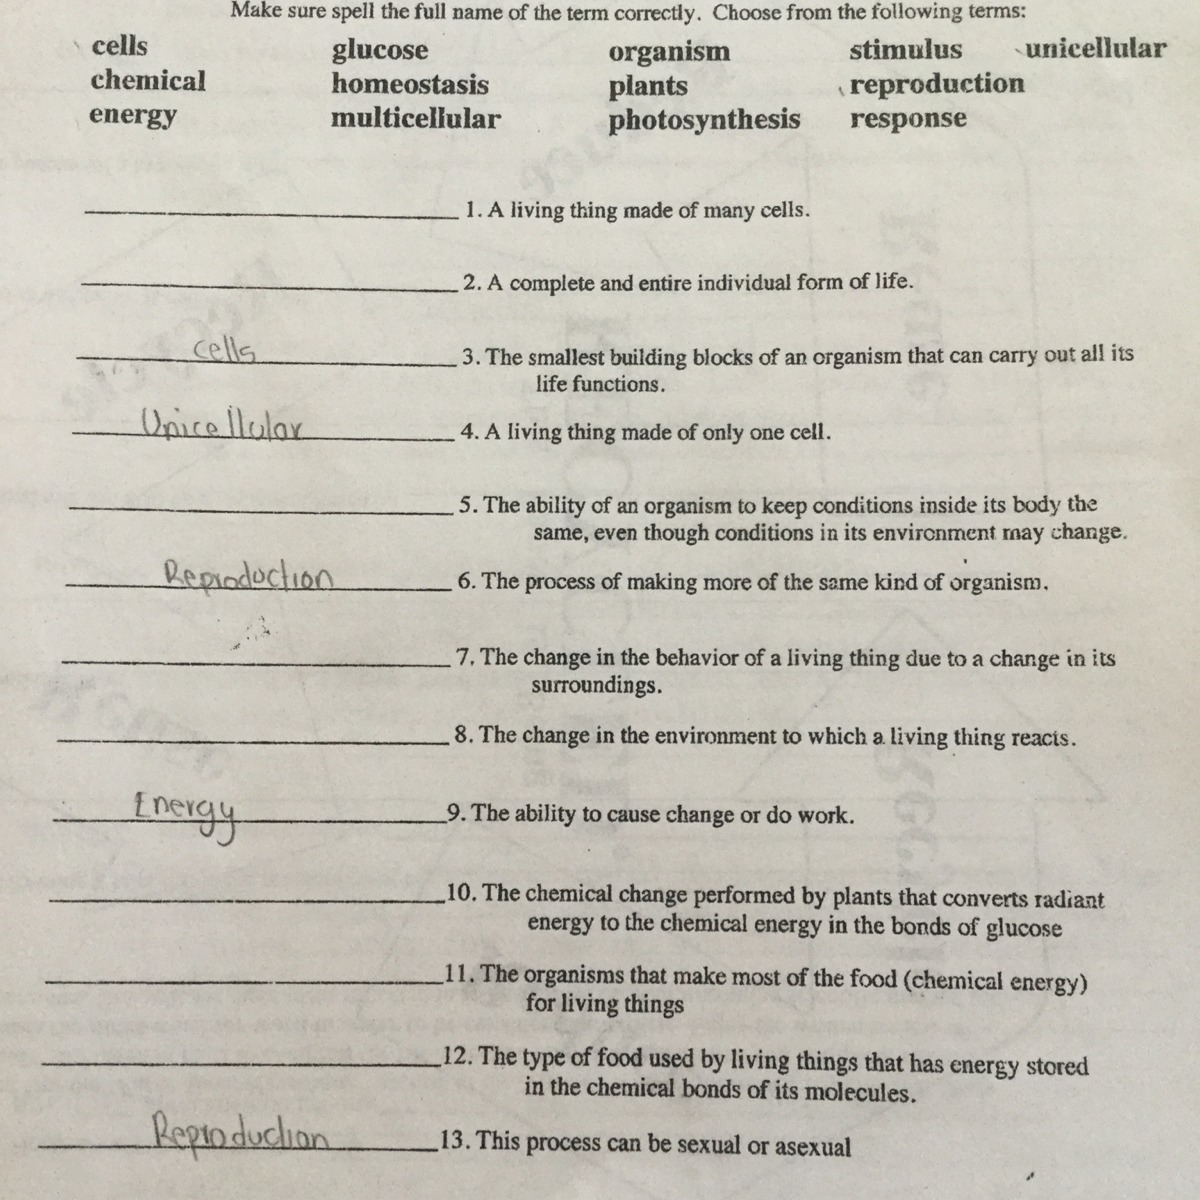 Make sure spell the full name of the term correctly. Choose from the following terms:
cells glucose organism stimulus unicellular
chemical homeostasis plants reproduction
energy multicellular photosynthesis response
1. A living thing made of many cells.
2. A complete and entire individual form of life.
cells 3. The smallest building blocks of an organism that can carry out all its
life functions.
Unicellular 4. A living thing made of only one cell.
5. The ability of an organism to keep conditions inside its body the
same, even though conditions in its environment may change.
Reproduction 6. The process of making more of the same kind of organism.
7. The change in the behavior of a living thing due to a change in its
surroundings.
8. The change in the environment to which a living thing reacts.
Energy 9. The ability to cause change or do work.
10. The chemical change performed by plants that converts radiant
energy to the chemical energy in the bonds of glucose
11. The organisms that make most of the food (chemical energy)
for living things
12. The type of food used by living things that has energy stored
in the chemical bonds of its molecules.
Reproduction 13. This process can be sexual or asexual